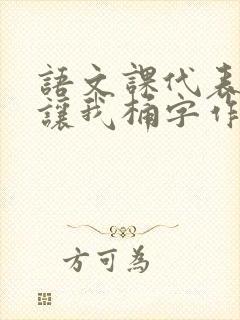 語文課代表
讓我桶字作
方可為